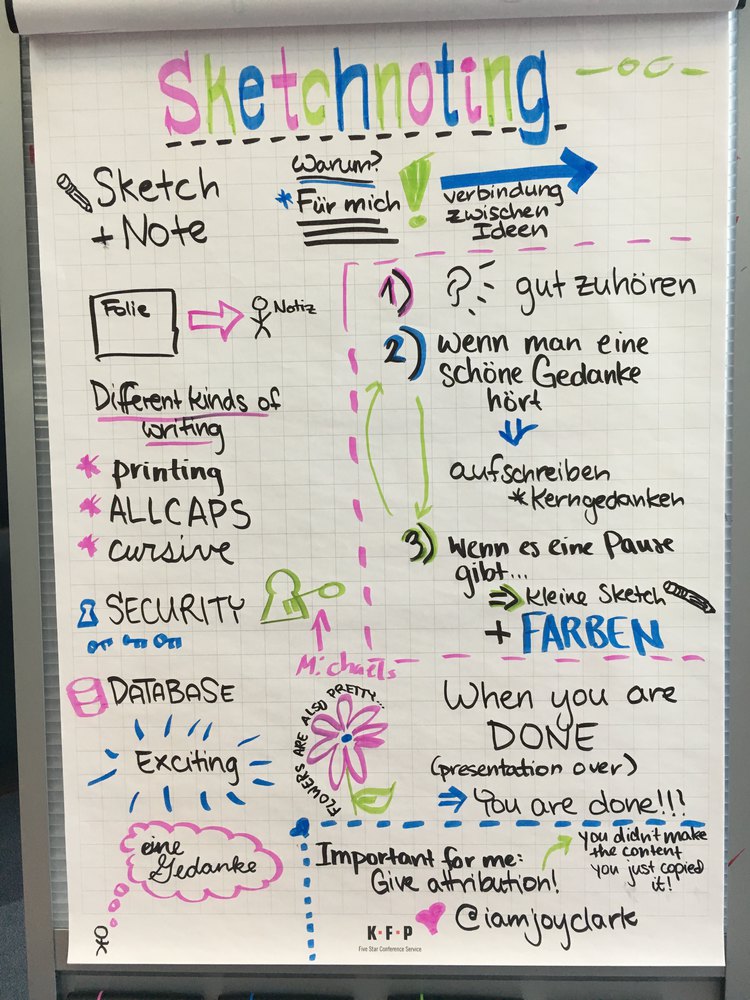 Sketchnoting
Sketch
+ Note
Warum?
* Für mich
!
verbindung
zwischen
Ideen
Folie
Notiz
Different kinds of
writing
* printing
* ALLCAPS
* cursive
SECURITY
Michaels
DATABASE
Exciting
eine
Gedanke
1) ? gut zuhören
2) wenn man eine
schöne Gedanke
hört
aufschreiben
* Kerngedanken
3) Wenn es eine Pause
gibt...
⇒ kleine Sketch
+ FARBEN
FLOWERS ARE ALSO PRETTY...
When you are
DONE
(presentation over)
⇒ You are done!!!
Important for me:
Give attribution!
you didn't make
the content
you just copied
it!
@iamjoyclark
K·F·P
Five Star Conference Service